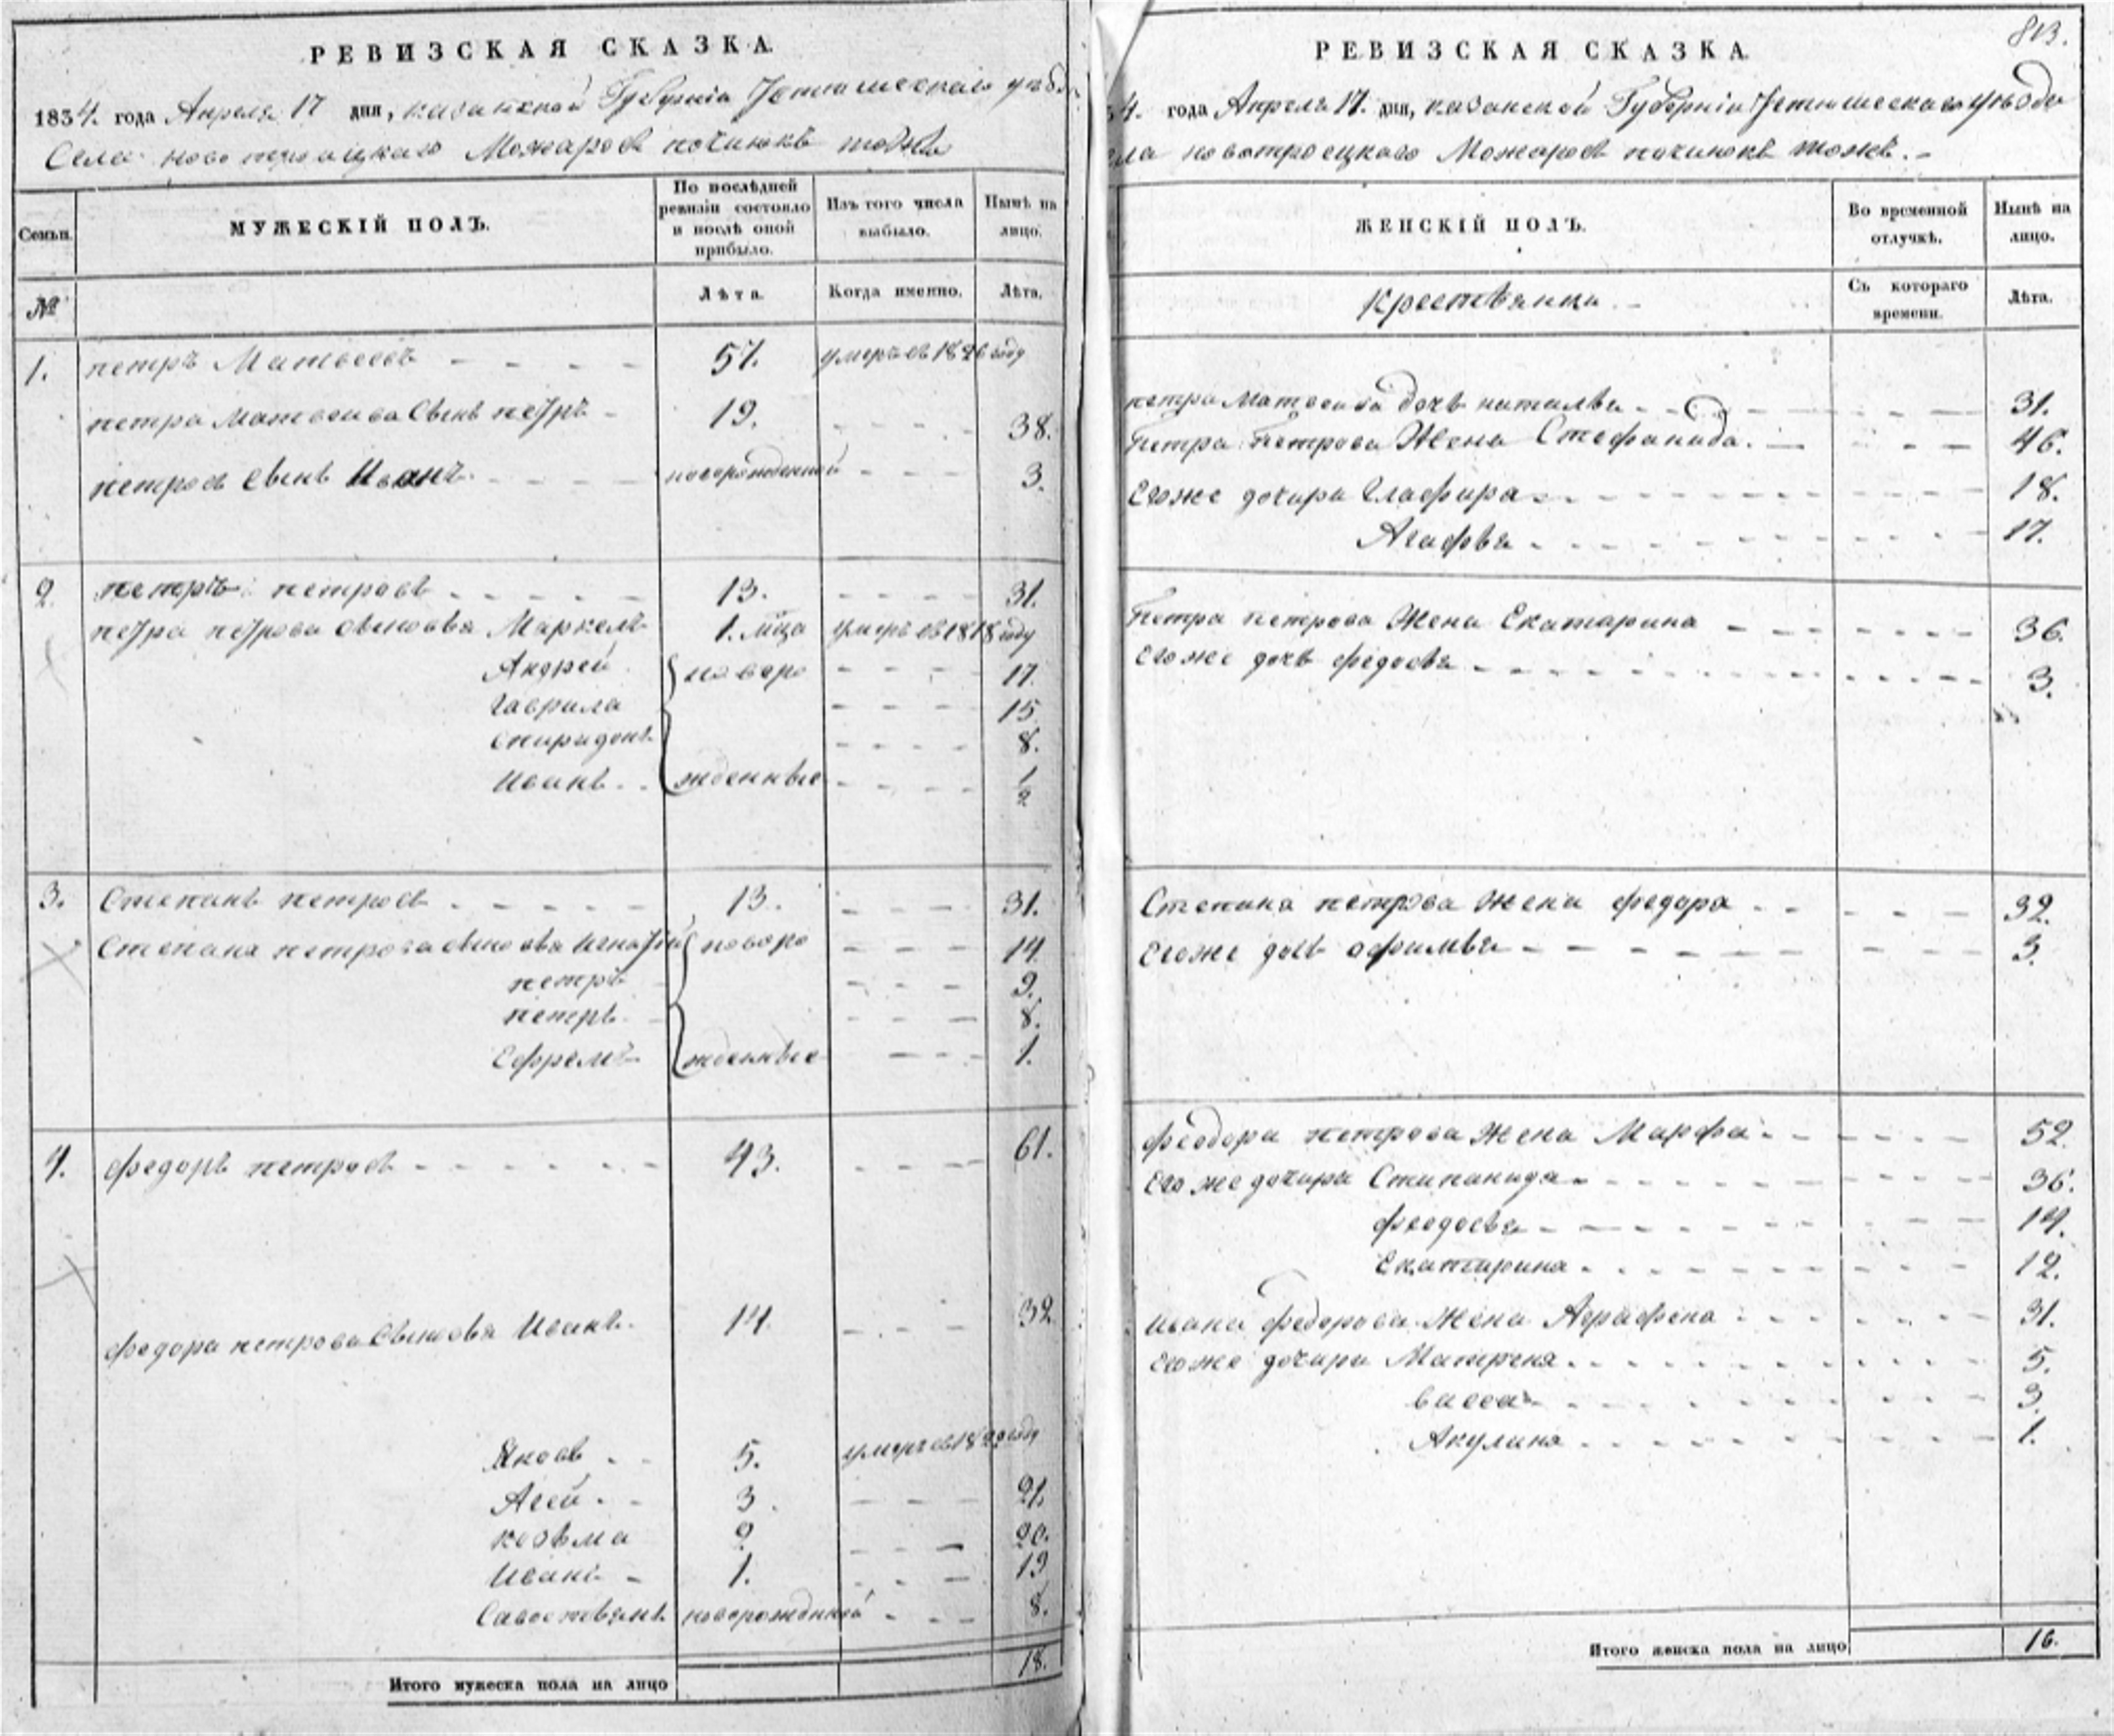 РЕВИЗСКАЯ СКАЗКА.
1834. года Апреля 17 дня, казанской Губерніи Тетюшескаго уѣзда
Села новотроицкаго Можаровъ починокъ тожъ
Семьи.
МУЖЕСКІЙ ПОЛЪ.
По послѣдней ревизіи состояло и послѣ оной прибыло.
Изъ того числа выбыло.
Нынѣ на лицо.
№
Лѣта.
Когда именно.
Лѣта.
1. петръ Матвеевъ 57. умеръ въ 1826 году
петра Матвеива сынъ петръ 19. 38.
петровъ сынъ Иванъ новорожденной 3.
2. петръ петровъ 13. 31.
петра петрова сыновья Маркелъ 1. мца умеръ въ 1818 году
Андрей новоро 17.
Гаврила 15
Спиридонъ 8.
Иванъ жденные 1/2
3. Степанъ петровъ 13. 31.
Степана петрова сыновья Игнатій новоро 14
петръ 9.
петръ 8.
Ефремъ жденные 1.
4. федоръ петровъ 43. 61.
федора петрова сыновья Иванъ 14. 32
Яковъ 5. умеръ въ 1822 году
Агей 3. 21.
козьма 2 20.
Иванъ 1. 19
Савостьянъ новорожденной 8.
Итого мужеска пола на лицо 18.
813.
РЕВИЗСКАЯ СКАЗКА.
4. года Апреля 17. дня, казанской Губерніи Тетюшескаго уѣзда
ла новотроецкаго Можаровъ починокъ тожъ.
ЖЕНСКІЙ ПОЛЪ.
Во временной отлучкѣ.
Нынѣ на лицо.
крестьянки
Съ котораго времени.
Лѣта.
петра Матвеива дочь наталья 31.
Петра Петрова Жена Стефанида. 46.
Егоже дочири Глафира 18.
Агафья 17.
Петра петрова Жена Екатарина 36.
Егоже дочь федосья 3.
Степана петрова жена федора 32.
Егоже дочь афимья 3.
феодора петрова Жена Марфа 52
Егоже дочири Стипанида 36.
феодосья 14.
Екатирина 12.
ивана федорова Жена Аграфена 31.
Егоже дочири Матрена 5.
васса 3.
Акулина 1.
Итого женска пола на лицо 16.